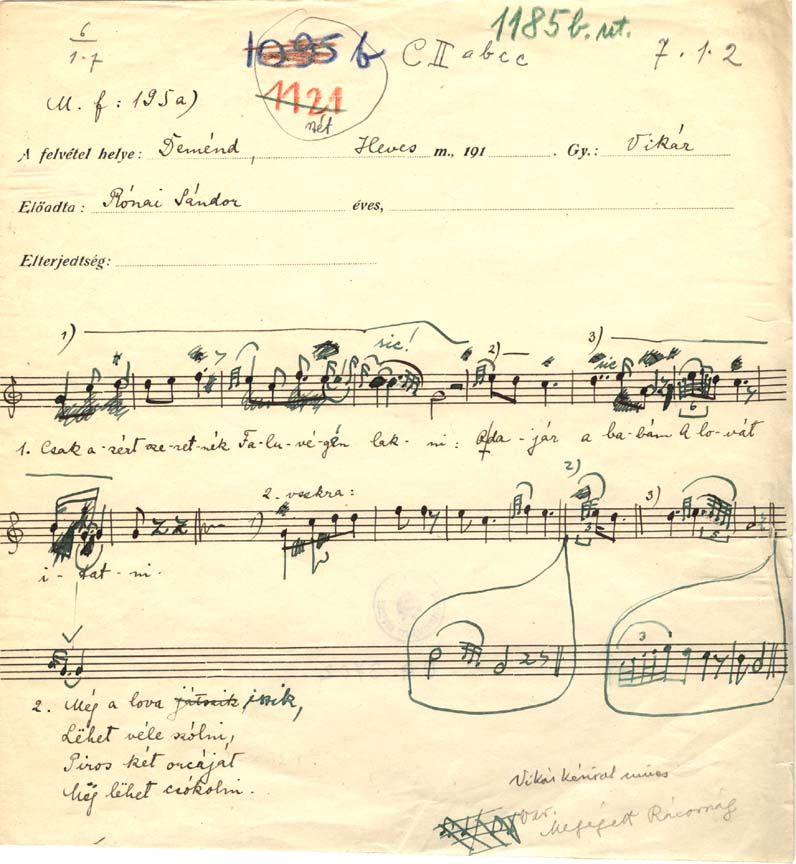 6
1.7
1095 b
1121
nét
C II abcc
1185 b. nt.
7.1.2
M. f: 195a)
A felvétel helye: Deménd, Heves m., 191 . Gy.: Vikár
Előadta: Rónai Sándor éves,
Elterjedtség:
1) sic! 2) 3) sic
6
1. Csak a-zért sze-ret-nék Fa-lu-vé-gén lak-ni: Oda-jár a ba-bám A lo-vát
2. vsskra:
1) 2) 3)
3 5
i-tat-ni.
3
2. Még a lova játszik iszik,
Lëhet véle szólni,
Piros két orcáját
Még lëhet csókolni.
Vikár
var.
Megégett Rácország